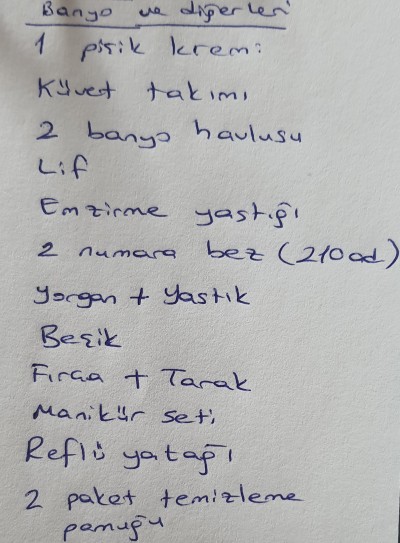 Banyo ve diğerleri
1 pişik kremi
Küvet takımı
2 banyo havlusu
Lif
Emzirme yastığı
2 numara bez (210ad)
Yorgan + Yastık
Beşik
Fırça + Tarak
Manikür seti
Reflü yatağı
2 paket temizleme
pamuğu